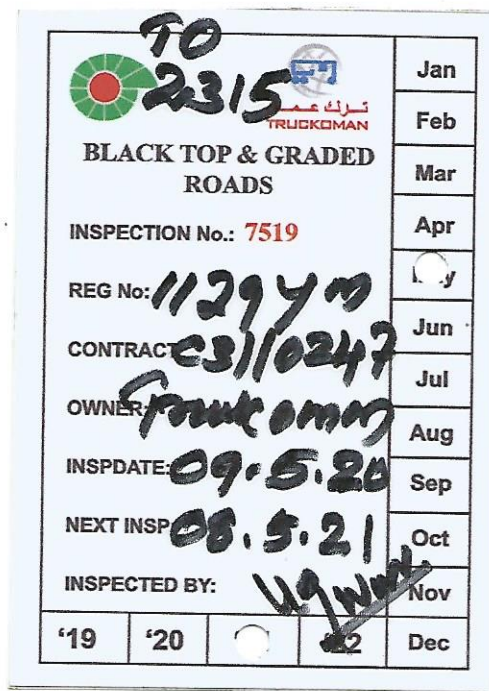 TO
2315
تـرك عـمـان
TRUCKOMAN
BLACK TOP & GRADED
ROADS
INSPECTION No.: 7519
REG No: 1129 YM
CONTRACT C3110247
OWNER: Truckoman
INSPDATE: 09.5.20
NEXT INSP 08.5.21
INSPECTED BY:
Jan
Feb
Mar
Apr
Jun
Jul
Aug
Sep
Oct
Nov
Dec
'19
'20